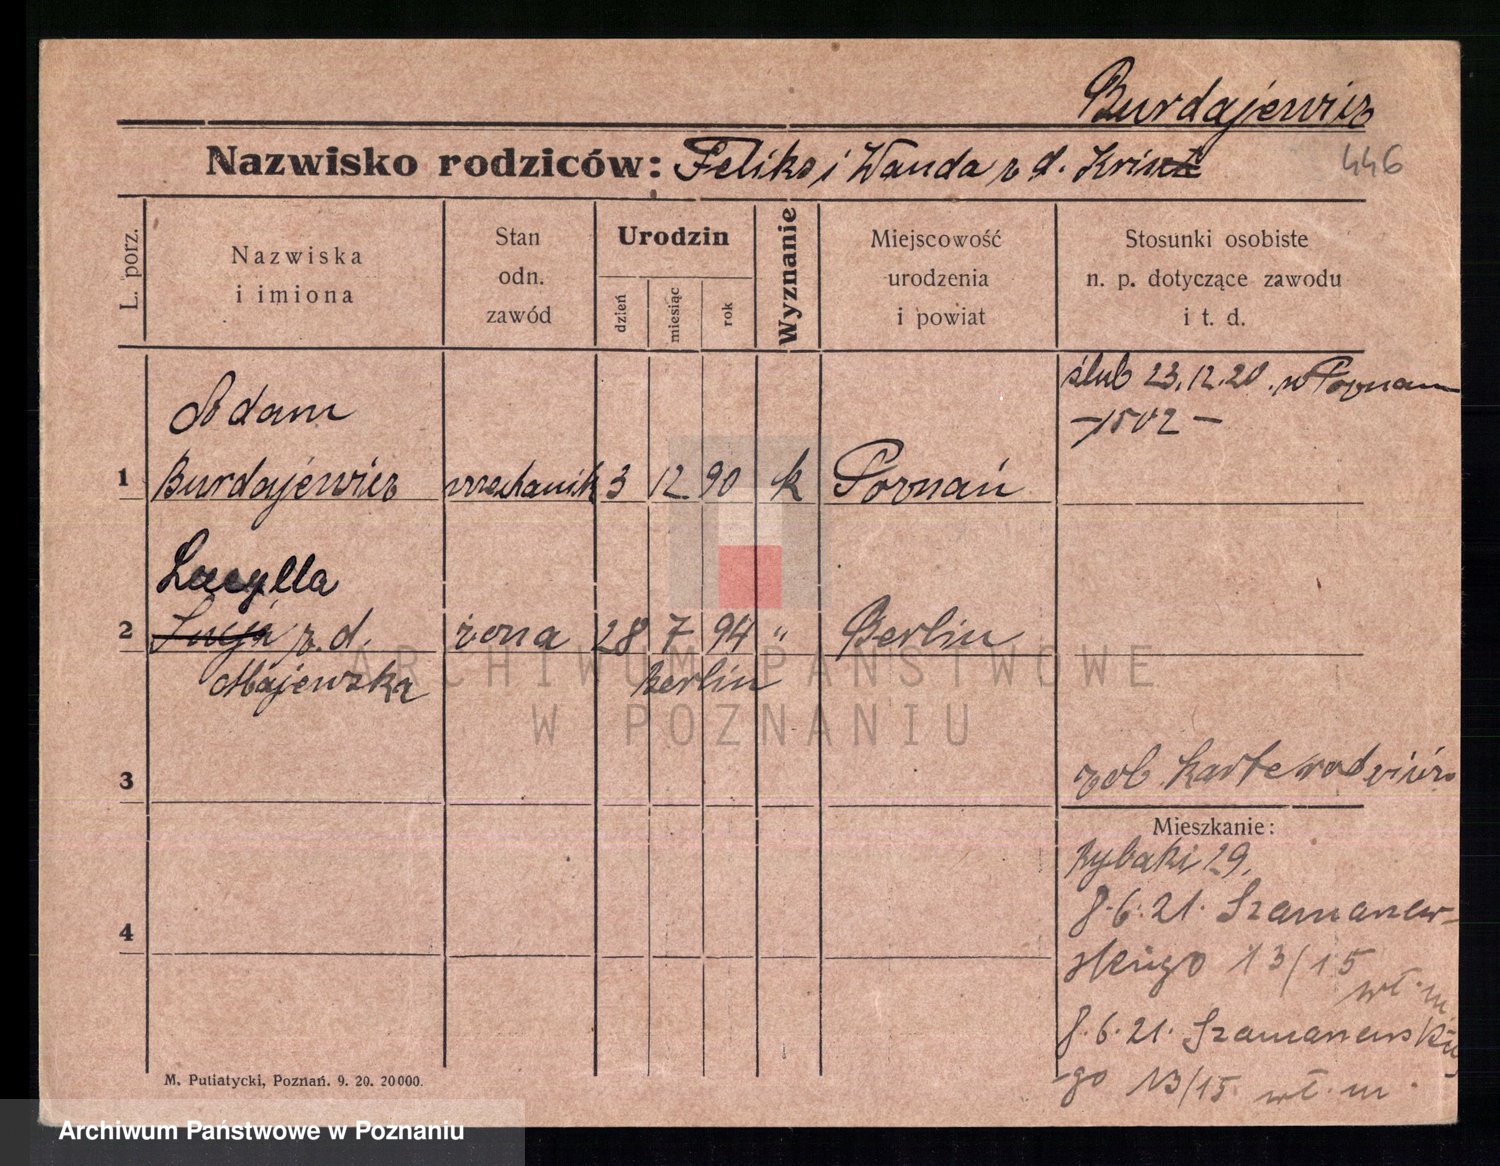 Burdajewicz
Nazwisko rodziców: Feliks i Wanda z d.
446
L. porz.
Nazwiska
i imiona
Stan
odn.
zawód
Urodzin
dzień
miesiąc
rok
Wyznanie
Miejscowość
urodzenia
i powiat
Stosunki osobiste
n. p. dotyczące zawodu
i t. d.
ślub 23.12.20. w Poznan
-1502-
Adam
1 Burdajewicz mechanik 3 12 90 k Poznań
Lucylla
2 Lucja z d. żona 28 7 94 " Berlin
Majewska Berlin
3 zob. Karte rodziców
Mieszkanie:
Rybaki 29.
8.6.21. Szamarzew-
skiego 13/15
wł. m.
4
8.6.21. Szamarzewskie
-go 13/15 wł. m.
M. Putiatycki, Poznań. 9. 20. 20000.
ARCHIWUM PAŃSTWOWE
W POZNANIU
Archiwum Państwowe w Poznaniu